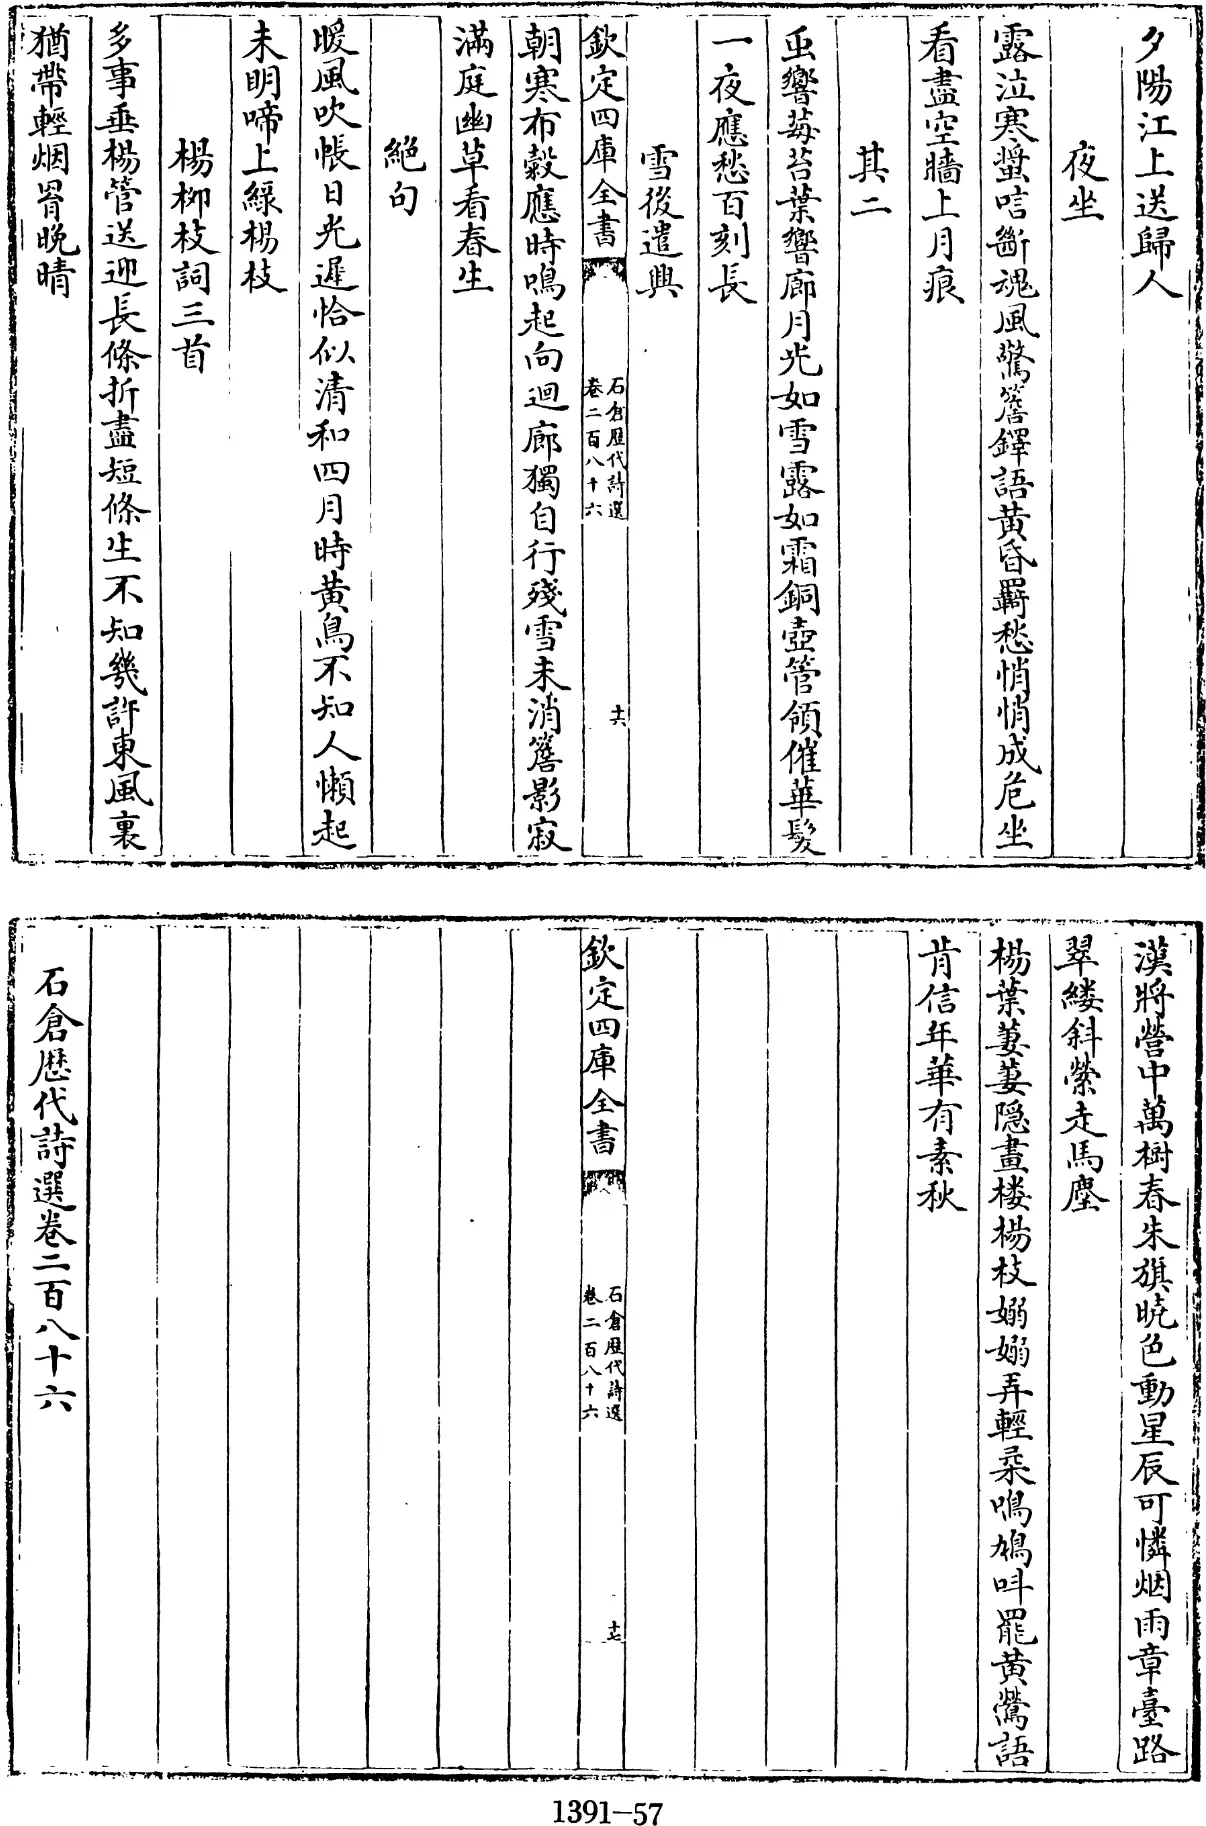 夕陽江上送歸人
夜坐
露泣寒螿唁斷魂風驚簷鐸語黄昏羇愁悄悄成危坐
看盡空牆上月痕
其二
虫響莓苔葉響廊月光如雪露如霜銅壺管領催華髮
一夜應愁百刻長
雪後遣興
欽定四庫全書
石倉歴代詩選
卷二百八十六
十六
朝寒布穀應時鳴起向迴廊獨自行殘雪未消簷影寂
滿庭幽草看春生
絶句
暖風吹帳日光遲恰似清和四月時黄鳥不知人懶起
未明啼上緑楊枝
楊柳枝詞三首
多事垂楊管送迎長條折盡短條生不知幾許東風裏
猶帶輕烟罥晚晴
漢將營中萬樹春朱旗曉色動星辰可憐烟雨章臺路
翠縷斜縈走馬塵
楊葉萋萋隱畫楼楊枝嫋嫋弄輕柔鳴鳩呌罷黄鶯語
肯信年華有素秋
欽定四庫全書
石倉歴代詩選
卷二百八十六
十七
石倉歴代詩選卷二百八十六
1391-57